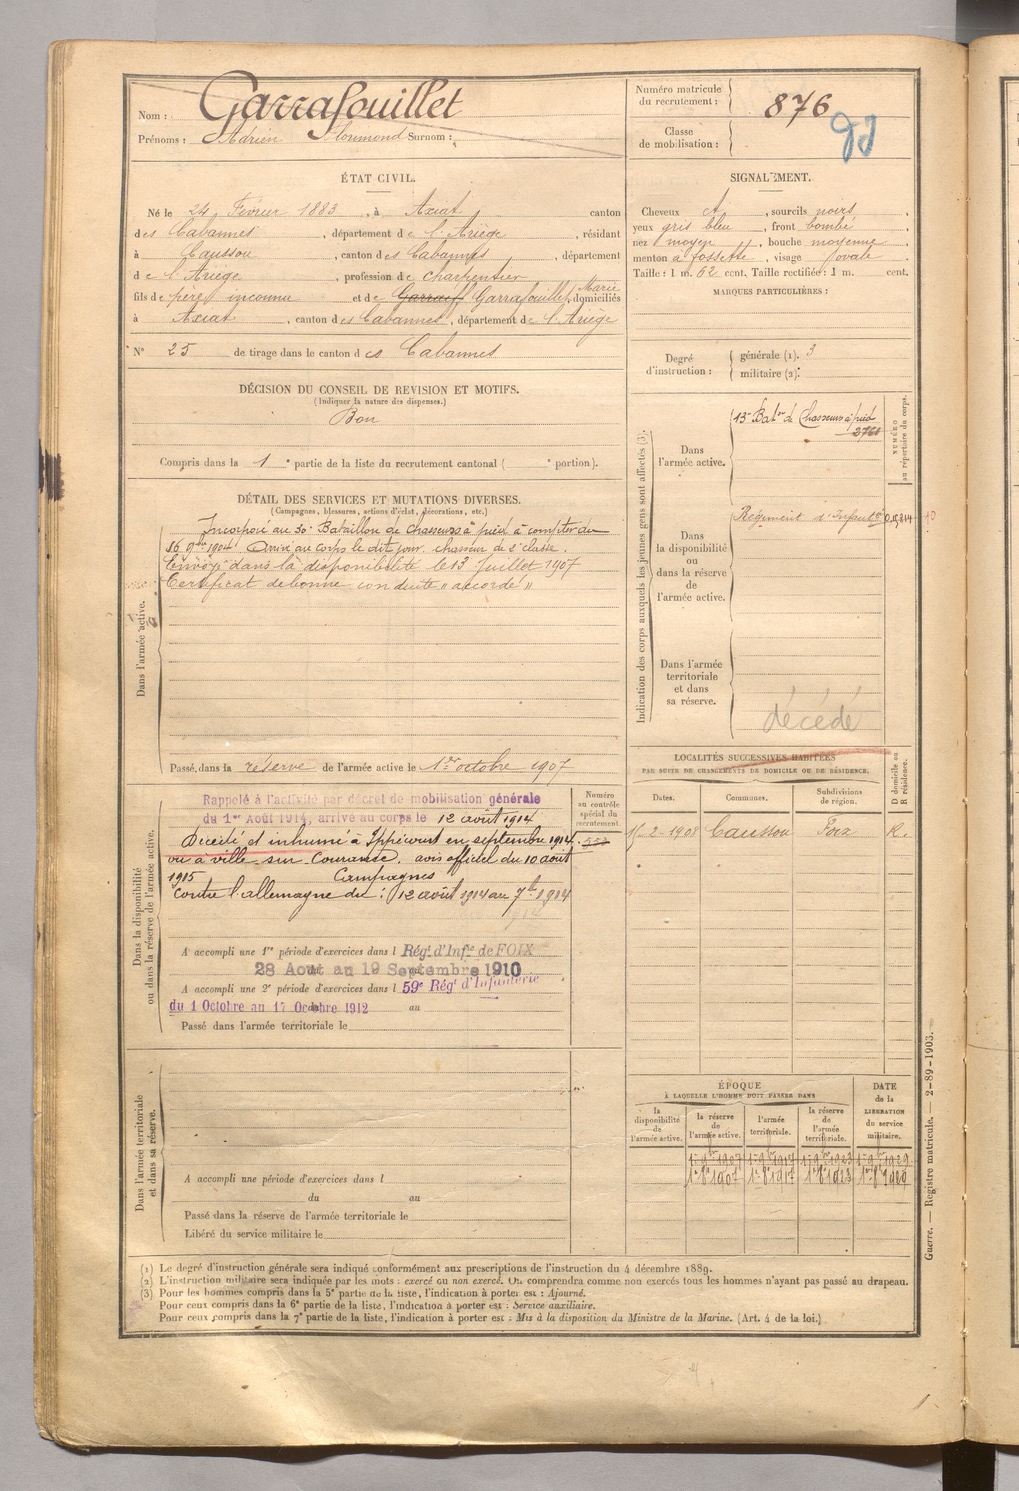 Nom : Garrafouillet
Prénoms : Adrien Surnom :
Numéro matricule du recrutement : 876
Classe de mobilisation :
ÉTAT CIVIL.
Né le 24 Février 1883, à Axiat canton
des Cabannes, département de l'Ariège, résidant
à Caussou, canton des Cabannes, département
de l'Ariège, profession de charpentier
fils de père inconnu et de Garrafouillet, Marie domiciliés
à Axiat, canton des Cabannes, département de l'Ariège
N° 25 de tirage dans le canton des Cabannes
SIGNALEMENT.
Cheveux, sourcils noirs,
yeux gris bleu, front bombé
nez moyen, bouche moyenne,
menton à fossette, visage ovale.
Taille : 1 m. 62 cent. Taille rectifiée : 1 m. cent.
MARQUES PARTICULIÈRES :
Degré d'instruction : générale (1). 3
militaire (2).
DÉCISION DU CONSEIL DE REVISION ET MOTIFS.
(Indiquer la nature des dispenses.)
Bon
Compris dans la 1e partie de la liste du recrutement cantonal (e portion).
DÉTAIL DES SERVICES ET MUTATIONS DIVERSES.
(Campagnes, blessures, actions d'éclat, décorations, etc.)
Dans l'armée active.
Incorporé au 30e Bataillon de chasseurs à pied à compter du
16 9bre 1904. Arrivé au corps le dit jour. chasseur de 2e classe.
Envoyé dans la disponibilité le 13 Juillet 1907
Certificat de bonne conduite « accordé »
Passé dans la réserve de l'armée active le 1er octobre 1907
Dans la disponibilité ou dans la réserve de l'armée active.
Rappelé à l'activité par décret de mobilisation générale
du 1er Août 1914, arrivé au corps le 12 août 1914
Décédé et inhumé à Ippécourt en septembre 1914
ou à ville-sur-Cousance. avis officiel du 10 août
1915 Campagnes
contre l'allemagne du : 12 août 1914 au 7bre 1914
A accompli une 1re période d'exercices dans l Régt d'Infie de FOIX
28 Aout au 19 Septembre 1910
A accompli une 2e période d'exercices dans l 59e Régt d'Infanterie
du 1 Octobre au 17 Octobre 1912 au
Passé dans l'armée territoriale le
Numéro au contrôle spécial du recrutement.
Dans l'armée territoriale et dans sa réserve.
A accompli une période d'exercices dans l
du au
Passé dans la réserve de l'armée territoriale le
Libéré du service militaire le
Indication des corps auxquels les jeunes gens sont affectés (3).
NUMÉRO au répertoire du corps.
Dans l'armée active.
Baton de Chasseurs à pied
2761
Dans la disponibilité ou dans la réserve de l'armée active.
Régiment d'Infanterie
Dans l'armée territoriale et dans sa réserve.
décédé
LOCALITÉS SUCCESSIVES HABITÉES
PAR SUITE DE CHANGEMENTS DE DOMICILE OU DE RÉSIDENCE.
Dates. Communes. Subdivisions de région. D domicile ou R résidence.
2-1908 Caussou Foix R.
ÉPOQUE
À LAQUELLE L'HOMME DOIT PASSER DANS
la disponibilité de l'armée active. la réserve de l'armée active. l'armée territoriale. la réserve de l'armée territoriale. DATE de la LIBÉRATION du service militaire.
1er 9bre 1907 1er 9bre 1917 1er 9bre 1923 1er 9bre 1929
1er 8bre 1907
(1) Le degré d'instruction générale sera indiqué conformément aux prescriptions de l'instruction du 4 décembre 1889.
(2) L'instruction militaire sera indiquée par les mots : exercé ou non exercé. On comprendra comme non exercés tous les hommes n'ayant pas passé au drapeau.
(3) Pour les hommes compris dans la 5e partie de la liste, l'indication à porter est : Ajourné.
Pour ceux compris dans la 6e partie de la liste, l'indication à porter est : Service auxiliaire.
Pour ceux compris dans la 7e partie de la liste, l'indication à porter est : Mis à la disposition du Ministre de la Marine. (Art. 4 de la loi.)
Guerre. — Registre matricule. — 2-89-1903.